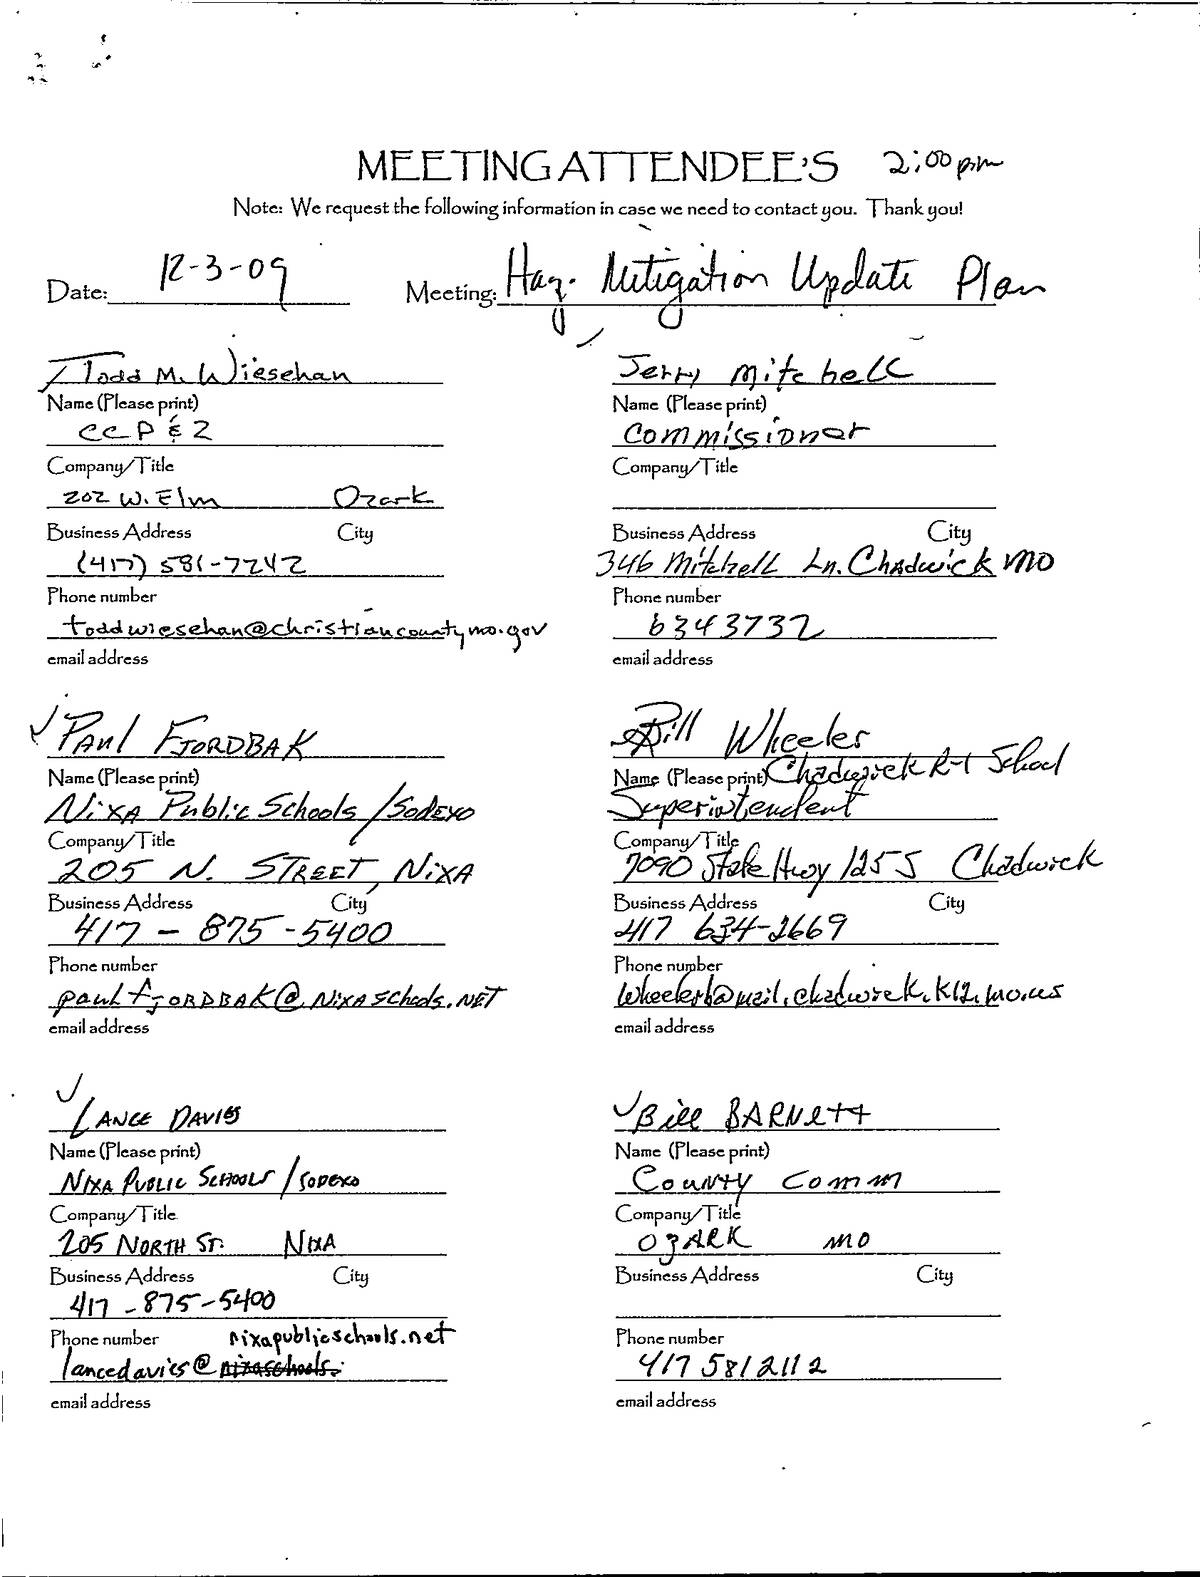 MEETING ATTENDEE'S 2:00 pm
Note: We request the following information in case we need to contact you. Thank you!
Date: 12-3-09 Meeting: Haz. Mitigation Update Plan
Todd M. Wiesehan
Name (Please print)
CCP & Z
Company/Title
202 W. Elm Ozark
Business Address City
(417) 581-7242
Phone number
toddwiesehan@christiancountymo.gov
email address
Jerry Mitchell
Name (Please print)
Commissioner
Company/Title
Business Address City
346 Mitchell Ln. Chadwick MO
Phone number
6343732
email address
Paul Fjordbak
Name (Please print)
Nixa Public Schools / Sodexo
Company/Title
205 N. Street, Nixa
Business Address City
417-875-5400
Phone number
paulfjordbak@nixaschools.net
email address
Bill Wheeler
Name (Please print) Chadwick R-1 School
Superintendent
Company/Title
7090 State Hwy 125 S Chadwick
Business Address City
417 634-2669
Phone number
wheelerb@mail.chadwick.k12.mo.us
email address
Lance Davies
Name (Please print)
Nixa Public Schools / Sodexo
Company/Title
205 North St. Nixa
Business Address City
417-875-5400
Phone number nixapublicschools.net
lancedavies@nixaschools.
email address
Bill Barnett
Name (Please print)
County Comm
Company/Title
Ozark MO
Business Address City
Phone number
417 581 2112
email address